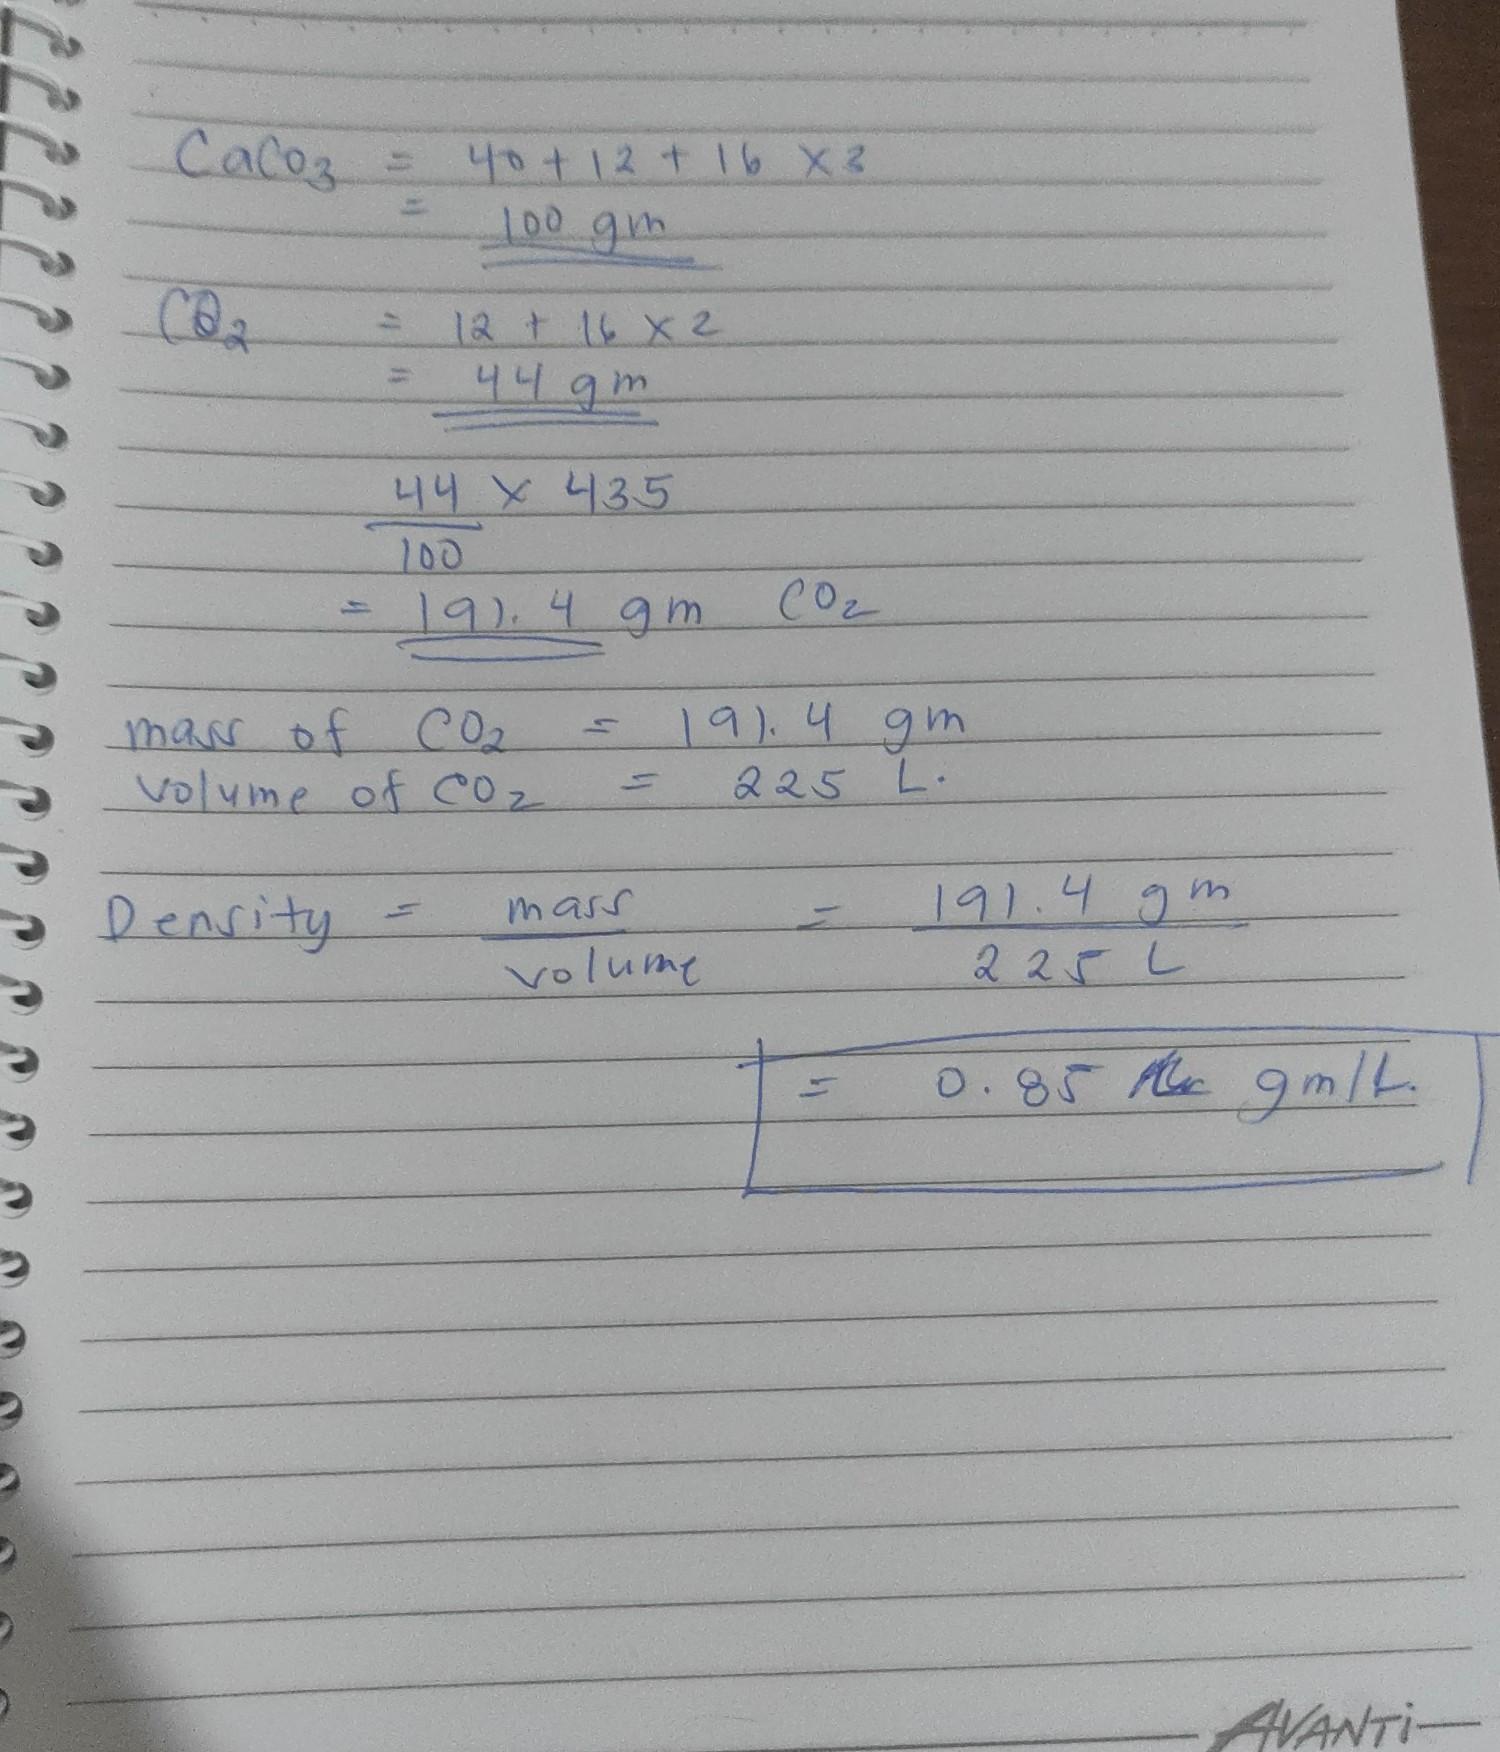 CaCO3 = 40 + 12 + 16 x 3
= 100 gm
CO2 = 12 + 16 x 2
= 44 gm
44 x 435
100
= 191.4 gm CO2
mass of CO2 = 191.4 gm
volume of CO2 = 225 L.
Density = mass = 191.4 gm
volume 225 L
= 0.85 gm/L.
AVANTi